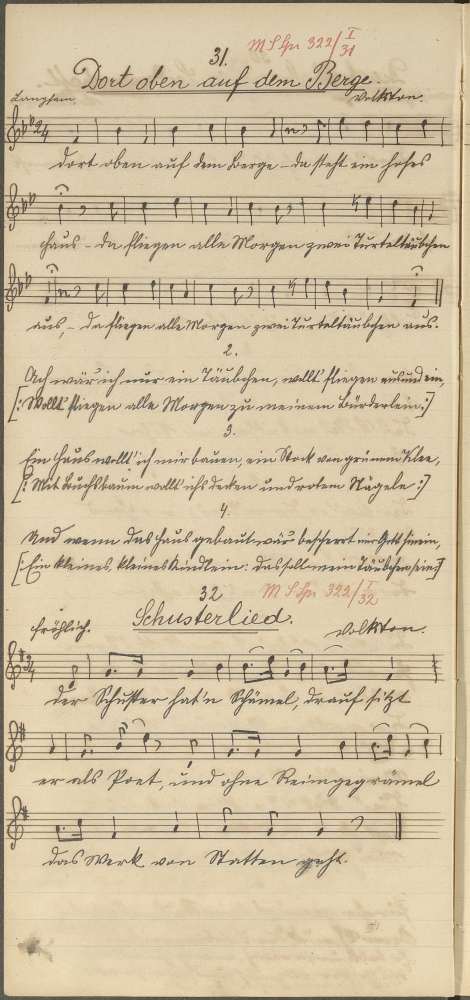 31.
Dort oben auf dem Berge.
Langsam Volkton.
dort oben auf dem Berge - da steht ein hohes
Haus - da fliegen alle Morgen zwei Turteltäubchen
aus, - da fliegen alle Morgen zwei Turteltäubchen aus.
2.
Ach wär' ich nur ein Täubchen, wollt' fliegen aus und ein,
[: Wollt' fliegen alle Morgen zu meinem Bürderlein. :]
3.
Ein Haus wollt' ich mir bauen, ein Stock von grünem Klee,
[: Mit Buchsbaum wollt ichs decken und rotem Nägele :]
4.
Und wenn das Haus gebaut wär bescherrt mir Gott hinein,
[: Ein kleines, kleines Kindlein: das soll mein Täubchen sein :]
32
Schusterlied.
fröhlich. Volkton.
der Schuster hat'n Schämel, drauf sitzt
er als Poet, und ohne Reimgegrämel
das Werk von Statten geht.